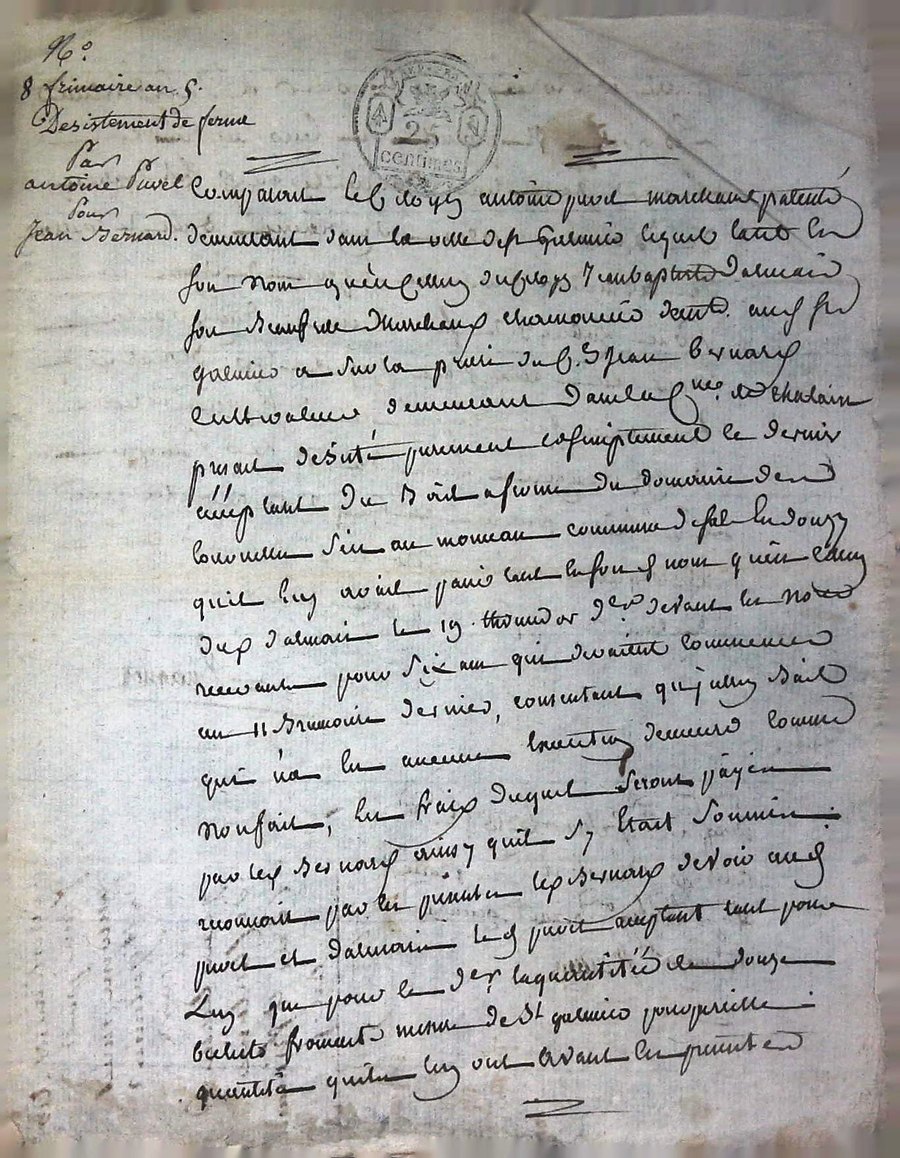 N.°
8 frimaire an 5.
Desistement de ferme
Par
antoine Puvel
Pour
Jean Bernard.
25
centimes
Comparait le Citoyen antoine puvel marchand patenté
demeurant dans la ville de st Galmier lequel tant en
son nom qu'en celluy du Citoyen Jean baptiste dalmais
son Beaufrere Marchand chamoiseur audt st
galmier a sur la priere du C.en Jean bernard
cultivateur demeurant dans la Cne de chalain
present desisté purement et simplement le dernier
acceptant du Bail a ferme du domaine de
situé au monceau commune de
qu'il luy avait passé tant en son d nom qu'en celluy
dud dalmais le 19 thermidor der devant les Nores
recevants pour six ans qui devaient commencer
au 11 Brumaire dernier, consentant que jcelluy Bail
qui n'a eu aucune execution demeure comme
non fait, les fraix duquel seront payés
par led Bernard ainsy qu'il s'y etait soumis.
reconnait par les presentes led Bernard devoir aud
puvel et dalmais led puvel acceptant tant pour
Luy que pour le der la quantité de douze
bichets froment mesure de St galmier pour pareille
quantité qu'ils luy ont avant les presentes